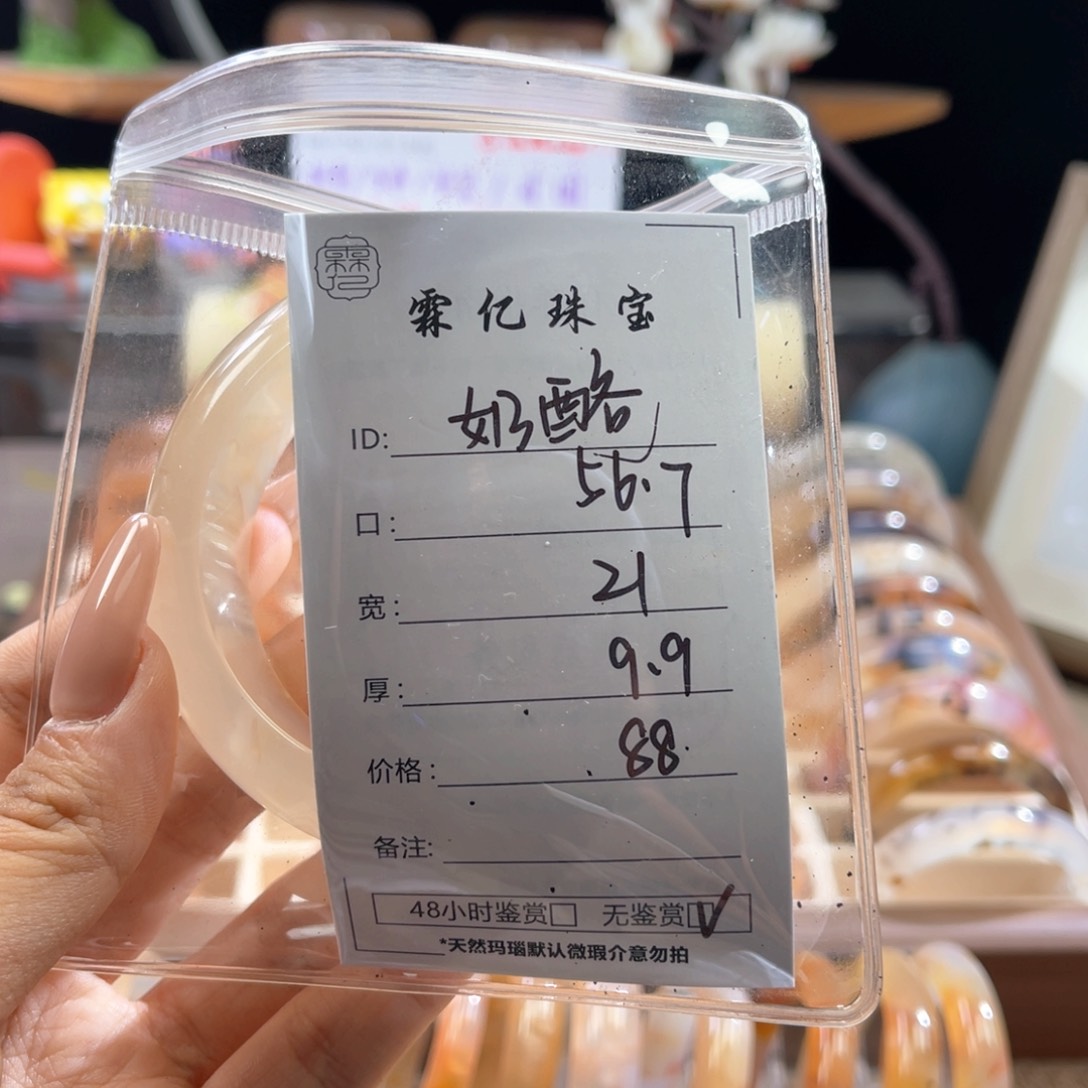 霖亿
霖亿珠宝
ID: 奶酪
口: 56.7
宽: 21
厚: 9.9
价格: 88
备注:
48小时鉴赏□ 无鉴赏☑
*天然玛瑙默认微瑕介意勿拍